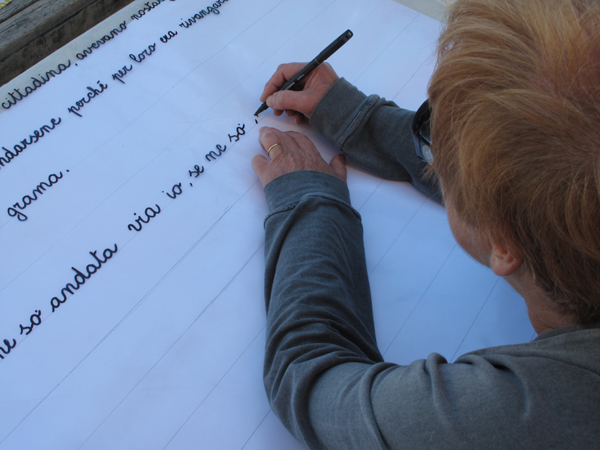 cittadina, avevano nosta
ndarsene perché per loro era rivangar
grama.
ne sò andata via io, se ne sò